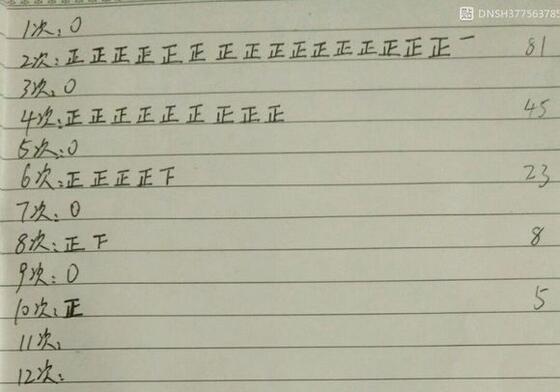 DNSH377563785
1次:0
2次:正正正正正正正正正正正正正正正正一 81
3次:0
4次:正正正正正正正正正 45
5次:0
6次:正正正正下 23
7次:0
8次:正下 8
9次:0
10次:正 5
11次:
12次: